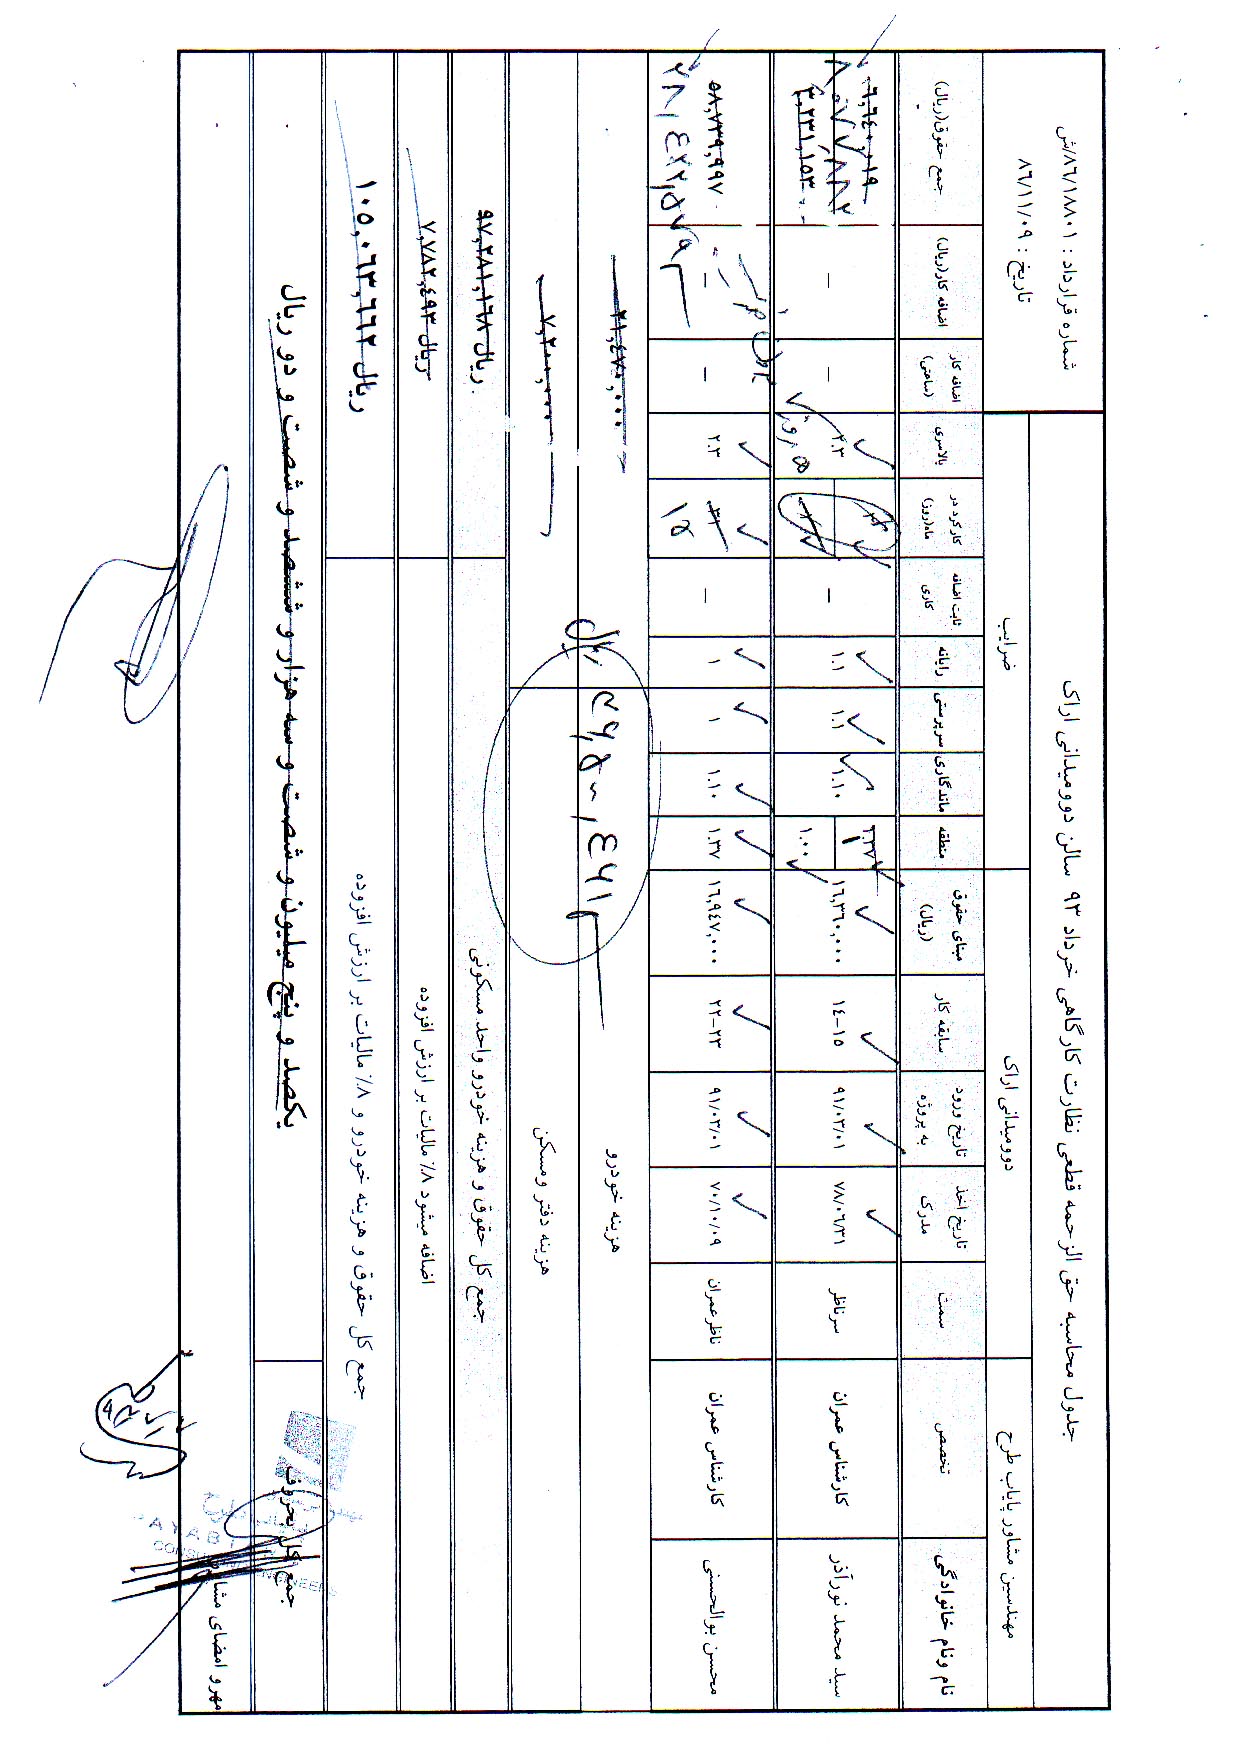 جدول محاسبه حق الزحمه قطعی نظارت کارگاهی خرداد ۹۳ سالن دوومیدانی اراک
شماره قرارداد : ۸۶/۱۸۸۰۱/ش
تاریخ : ۸۶/۱۱/۰۹
مهندسین مشاور پایاب طرح
دوومیدانی اراک
ضرایب
نام ونام خانوادگی
تخصص
سمت
تاریخ اخذ مدرک
تاریخ ورود به پروژه
سابقه کار
مبنای حقوق (ریال)
منطقه
ماندگاری
سرپرستی
رایانه
ثابت اضافه کاری
کارکرد در ماه(روز)
بالاسری
اضافه کار (ساعتی)
اضافه کار(ریال)
جمع حقوق(ریال)
سید محمد نورآذر
کارشناس عمران
سرناظر
۷۸/۰۶/۳۱
۹۱/۰۳/۰۱
۱۴-۱۵
۱۶,۳۶۰,۰۰۰
۱.۳۷
۱.۰۰
۱.۱۰
۱.۱
۱.۱
–
۲.۳
–
–
۳,۲۳۱,۱۵۳
محسن بوالحسنی
کارشناس عمران
ناظر عمران
۷۰/۱۰/۰۹
۹۱/۰۳/۰۱
۲۲-۲۳
۱۶,۹۴۷,۰۰۰
۱.۳۷
۱.۱۰
۱
۱
–
۳۱
۱۵
۲.۳
–
–
۵۸,۷۳۹,۹۹۷
۲۸,۴۲۲,۵۷۹
هزینه خودرو
۲۱,۴۷۰,۰۰۰
هزینه دفتر ومسکن
۷,۲۰۰,۰۰۰
۳۶,۵۰۰,۴۶۱ ریال
جمع کل حقوق و هزینه خودرو واحد مسکونی
۹۷,۲۸۱,۱۶۸ ریال
اضافه میشود ۸٪ مالیات بر ارزش افزوده
۷,۷۸۲,۴۹۳ ریال
جمع کل حقوق و هزینه خودرو و ۸٪ مالیات بر ارزش افزوده
۱۰۵,۰۶۳,۶۶۲ ریال
جمع کل بحروف
یکصد و پنج میلیون و شصت و سه هزار و ششصد و شصت و دو ریال
مهر و امضای